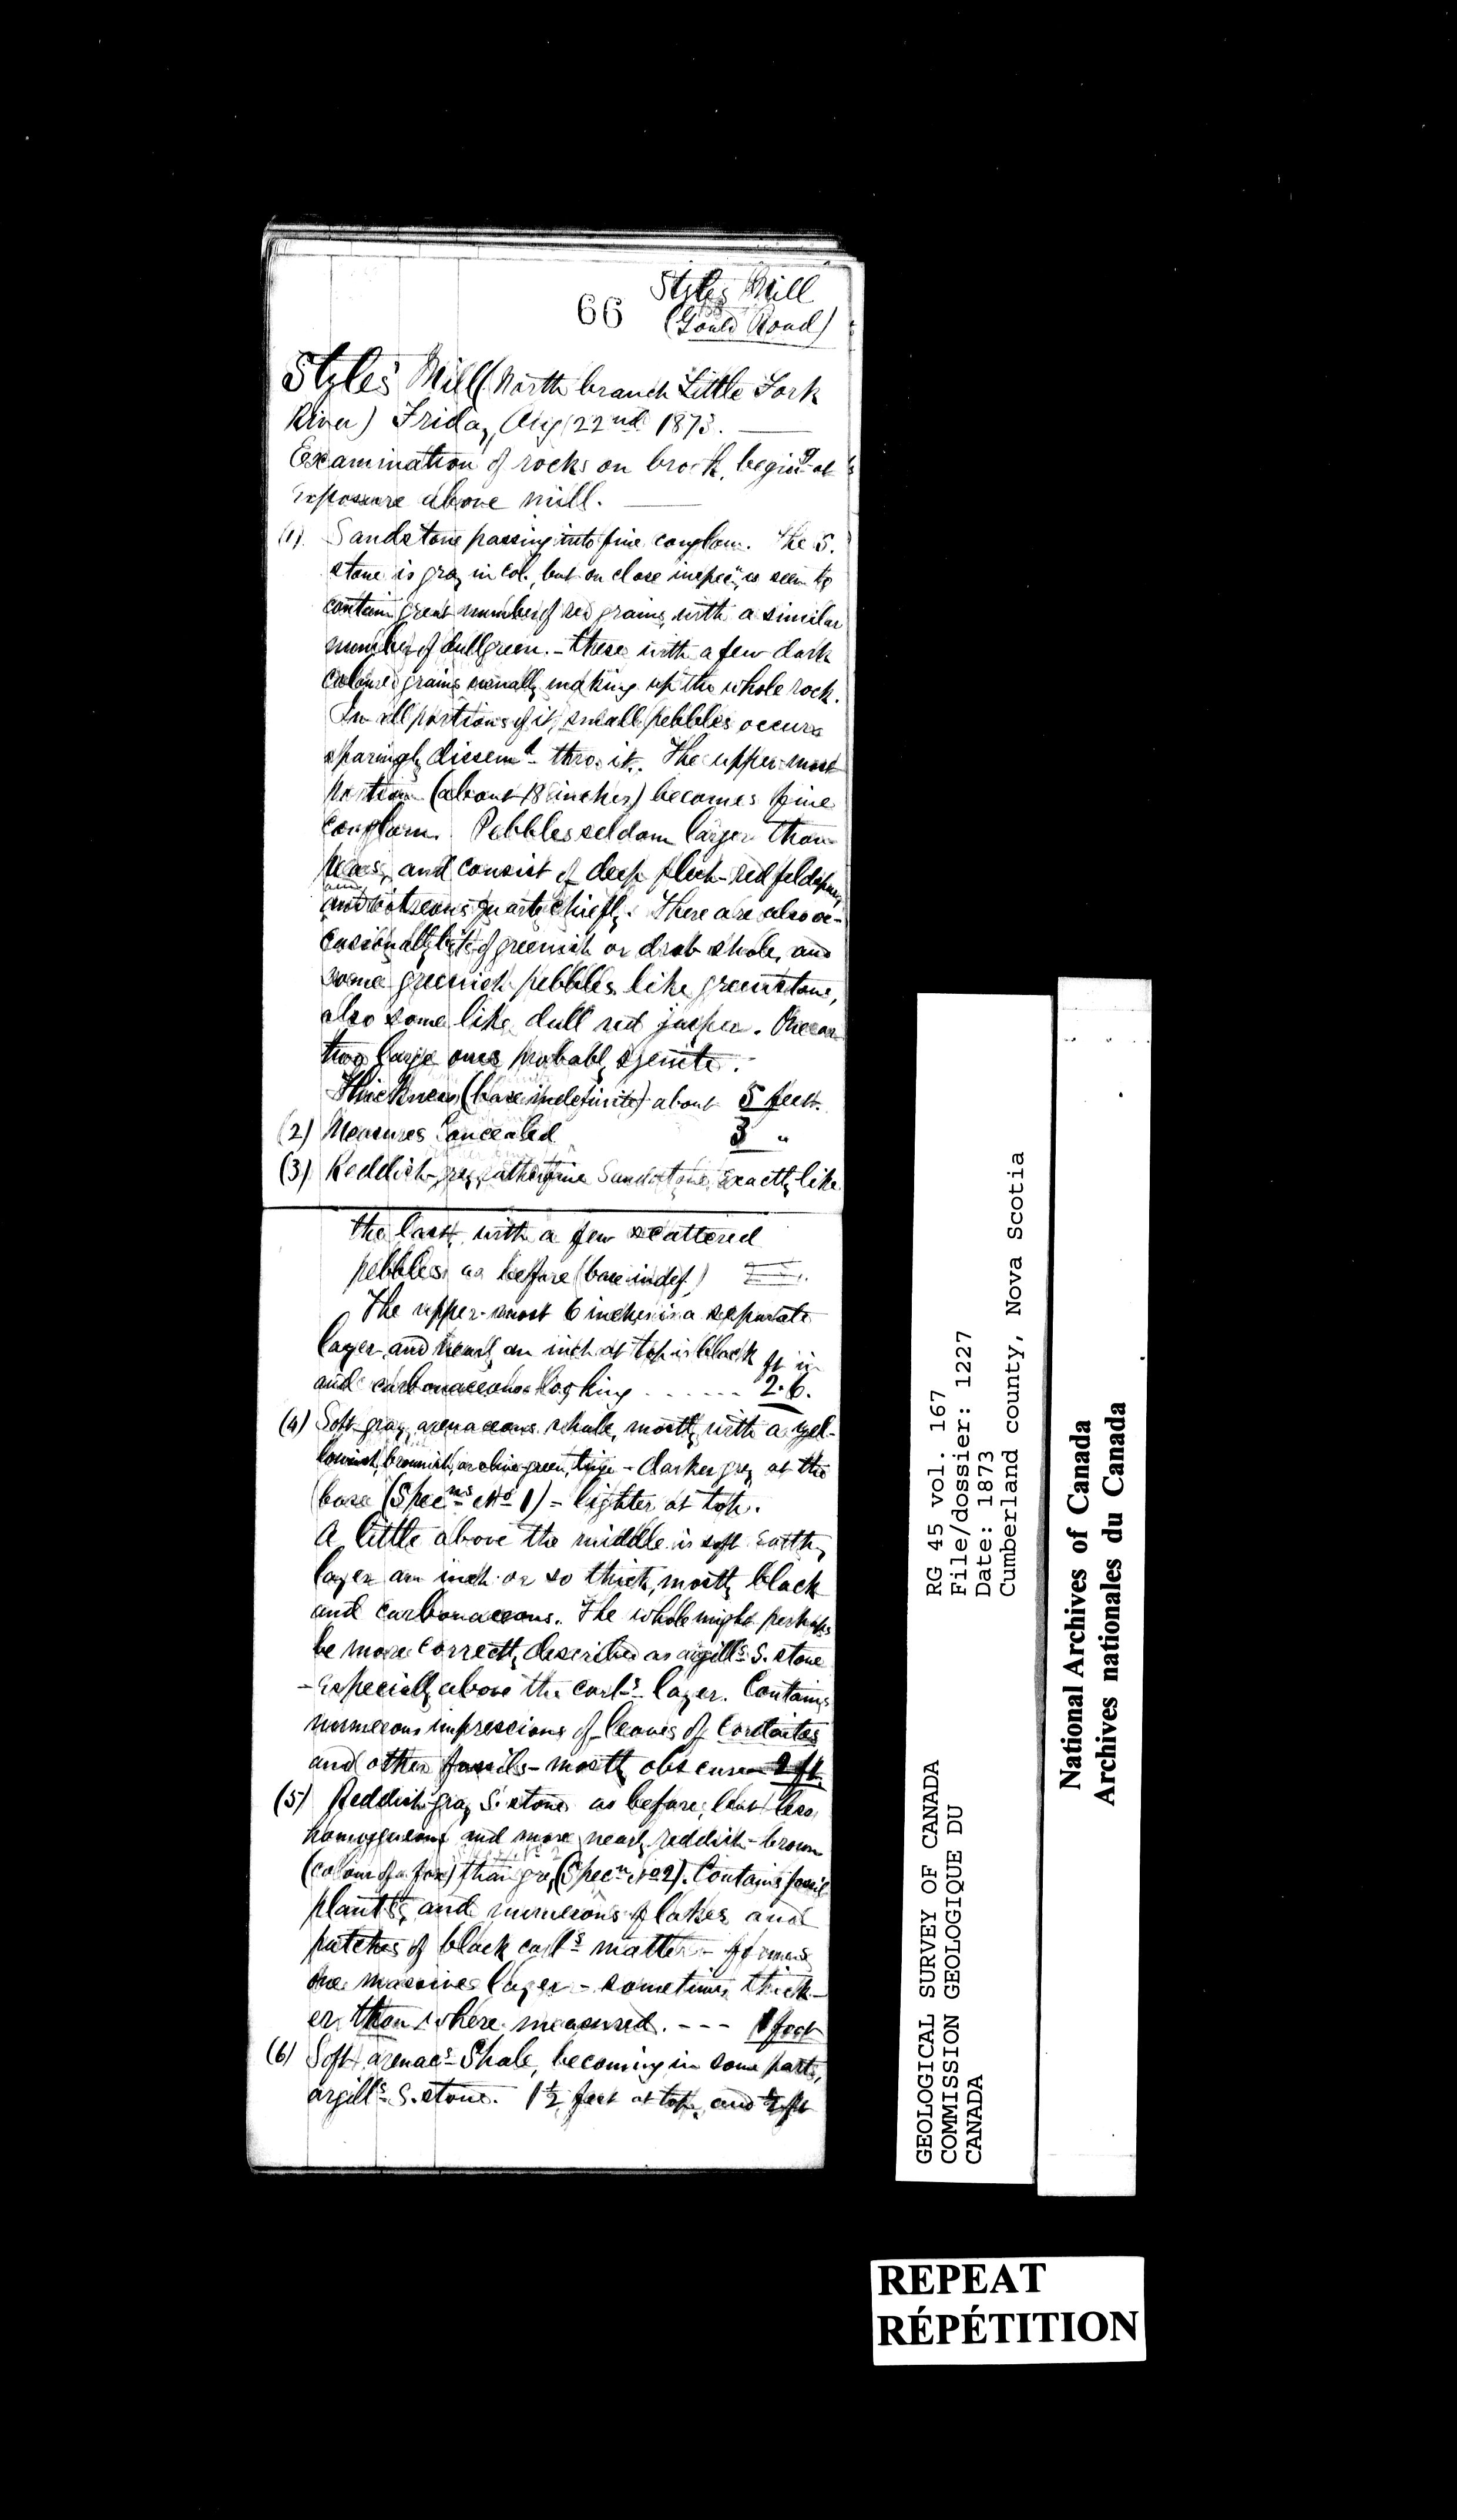 66
Styles Mill
(Gould Road)
Styles Mill (North branch Little Fork
River) Friday, Aug 22nd 1873.
Examination of rocks on brook, begin.g at
exposure above mill.
(1). Sandstone passing into fine conglom. The S.
stone is gray in col., but on close inspec.n is seen to
contain great number of red grains, with a similar
number of dull green. - these with a few dark
coloured grains usually making up the whole rock.
In all portions of it, small pebbles occurs
sparingly dissem.d thro. it. The upper-most
portion (about 18 inches) becomes fine
conglom. Pebbles seldom larger than
peas, and consist of deep flesh-red feldspar,
and vitreous quartz chiefly. There are also oc-
casionally bits of greenish or drab shale, and
some greenish pebbles like greenstone,
also some like dull red jasper. One or
two large ones probably syenite.
Thickness (base indefinite) about 5 feet.
(2) Measures Concealed 3 "
(3) Reddish-gray, rather fine Sandstone, exactly like
the last, with a few scattered
pebbles as before (base indef.)
The upper-most 6 inches is a separate
layer, and nearly an inch at top is black
ft in
and carbonaceous looking ...... 2.6.
(4) Soft gray, arenaceous shale, mostly with a yel-
lowish, brownish, or olive-green, tinge - darker gray at the
base (Spec.ns No 1) - lighter at top.
A little above the middle is soft earthy
layer an inch or so thick, mostly black
and carbonaceous. The whole might perhaps
be more correctly described as argill.s S. stone
- especially above the carb.s layer. Contains
numerous impressions of leaves of Cordaites
and other fossils - mostly obscure 2 ft.
(5) Reddish gray S. stone as before, but less
homogeneous and more nearly reddish-brown
(colour of a fox) than gray (Spec.n No 2). Contains fossil
plants, and numerous flakes and
patches of black carb.s matter - forms
one massive layer - sometimes thick-
er than where measured. --- 1 foot
(6) Soft arenac.s Shale, becoming in some parts,
argill.s S. stone. 1½ feet at top, and
RG 45 vol. 167
File/dossier: 1227
Date: 1873
Cumberland county, Nova Scotia
GEOLOGICAL SURVEY OF CANADA
COMMISSION GEOLOGIQUE DU
CANADA
National Archives of Canada
Archives nationales du Canada
REPEAT
RÉPÉTITION